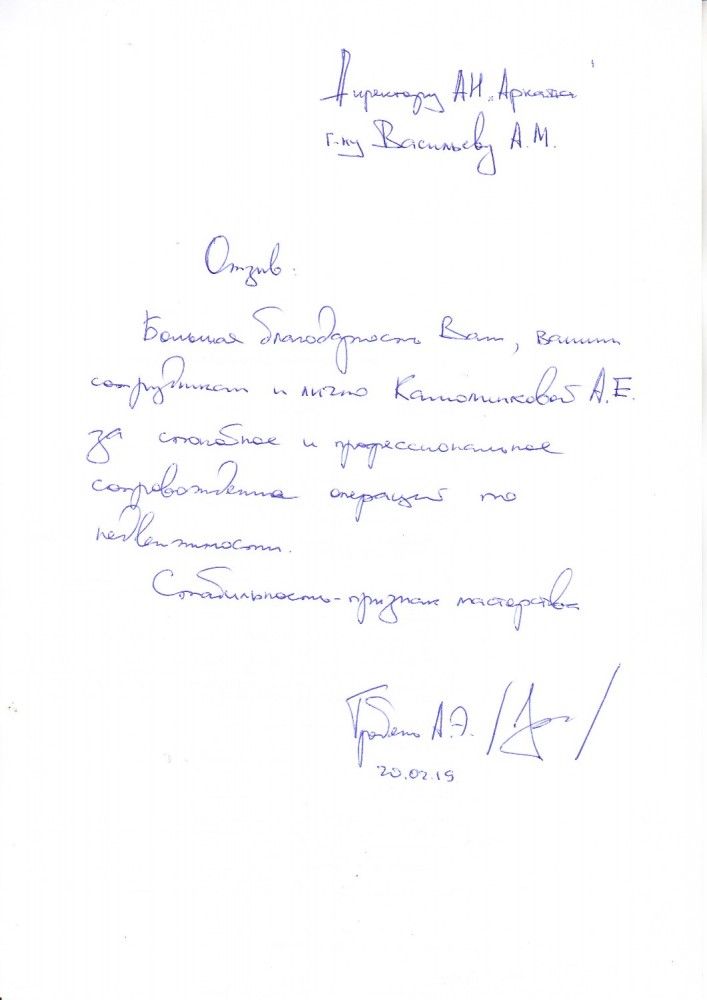 Директору АН „Аркада"
г-ну Васильеву А.М.
Отзыв.
Большая благодарность Вам, вашим
сотрудникам и лично А.Е.
за и профессиональное
сопровождение операций по
недвижимости.
Стабильность - признак мастерства
А.Э.
20.02.19